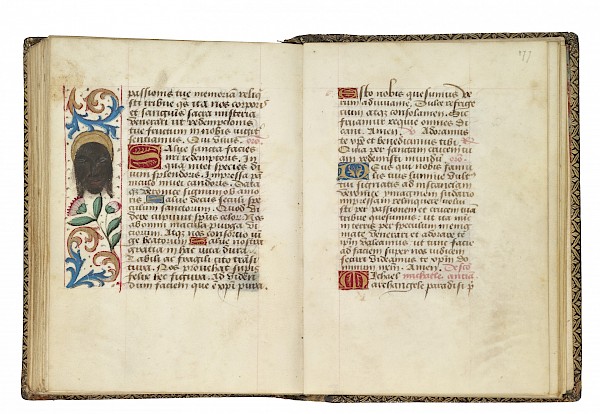 passionis tue memoriā reliq̄
sti tribue q̄s ita nos corporis
et sanguis sacra misteria
venerari ut redemptionis
tue fructum in nobis iugit̄
sentiamus. Qui vivis. oro.
Salve sancta facies
nri redemptoris. In
qua nitet species di
vini splendoris. Impressa pā
niculo nivei candoris. Dataqꝫ
veronice signum ob amo
ris Salve decus seculi spe
culum sanctorum. Quod vi
dere cupiunt spūs celor. Nos
ab omni macula purga vi
ciorum. Atqꝫ nos consortio iū
ge beatorum Salve nostra
gloria in hac vita dura
labili ac fragili cito trāsi
tura. Nos perduc ad superi
felix o figura. Ad viden
dum faciem que ē xpi pura.
Esto nobis quesumus ve
rum adiuvamē. Dulce refrige
rium atqꝫ consolamen. Sic
fruamur requie omnes di
cant. Amen. V Adoramus
te xpē et benedicimus tibi. R
Quia per sanctam crucem tu
am redemisti mundū. oro.
Deus qui nobis famu
lis tuis lumine vult
tus signatis ad instanciam
veronice ymaginem sudario
impressam relinquere volui
sti per passionem et crucem tuā
tribue quesumus. ut ita nunc
in terris per speculum in enig
mate venerari et adorare te
xpm valeamus. ut tunc facie
ad faciem super nos securi
videamus te xpm do
minum nrm. Amen. De sco
Michael michaele antiā
archangele paradisi p̄